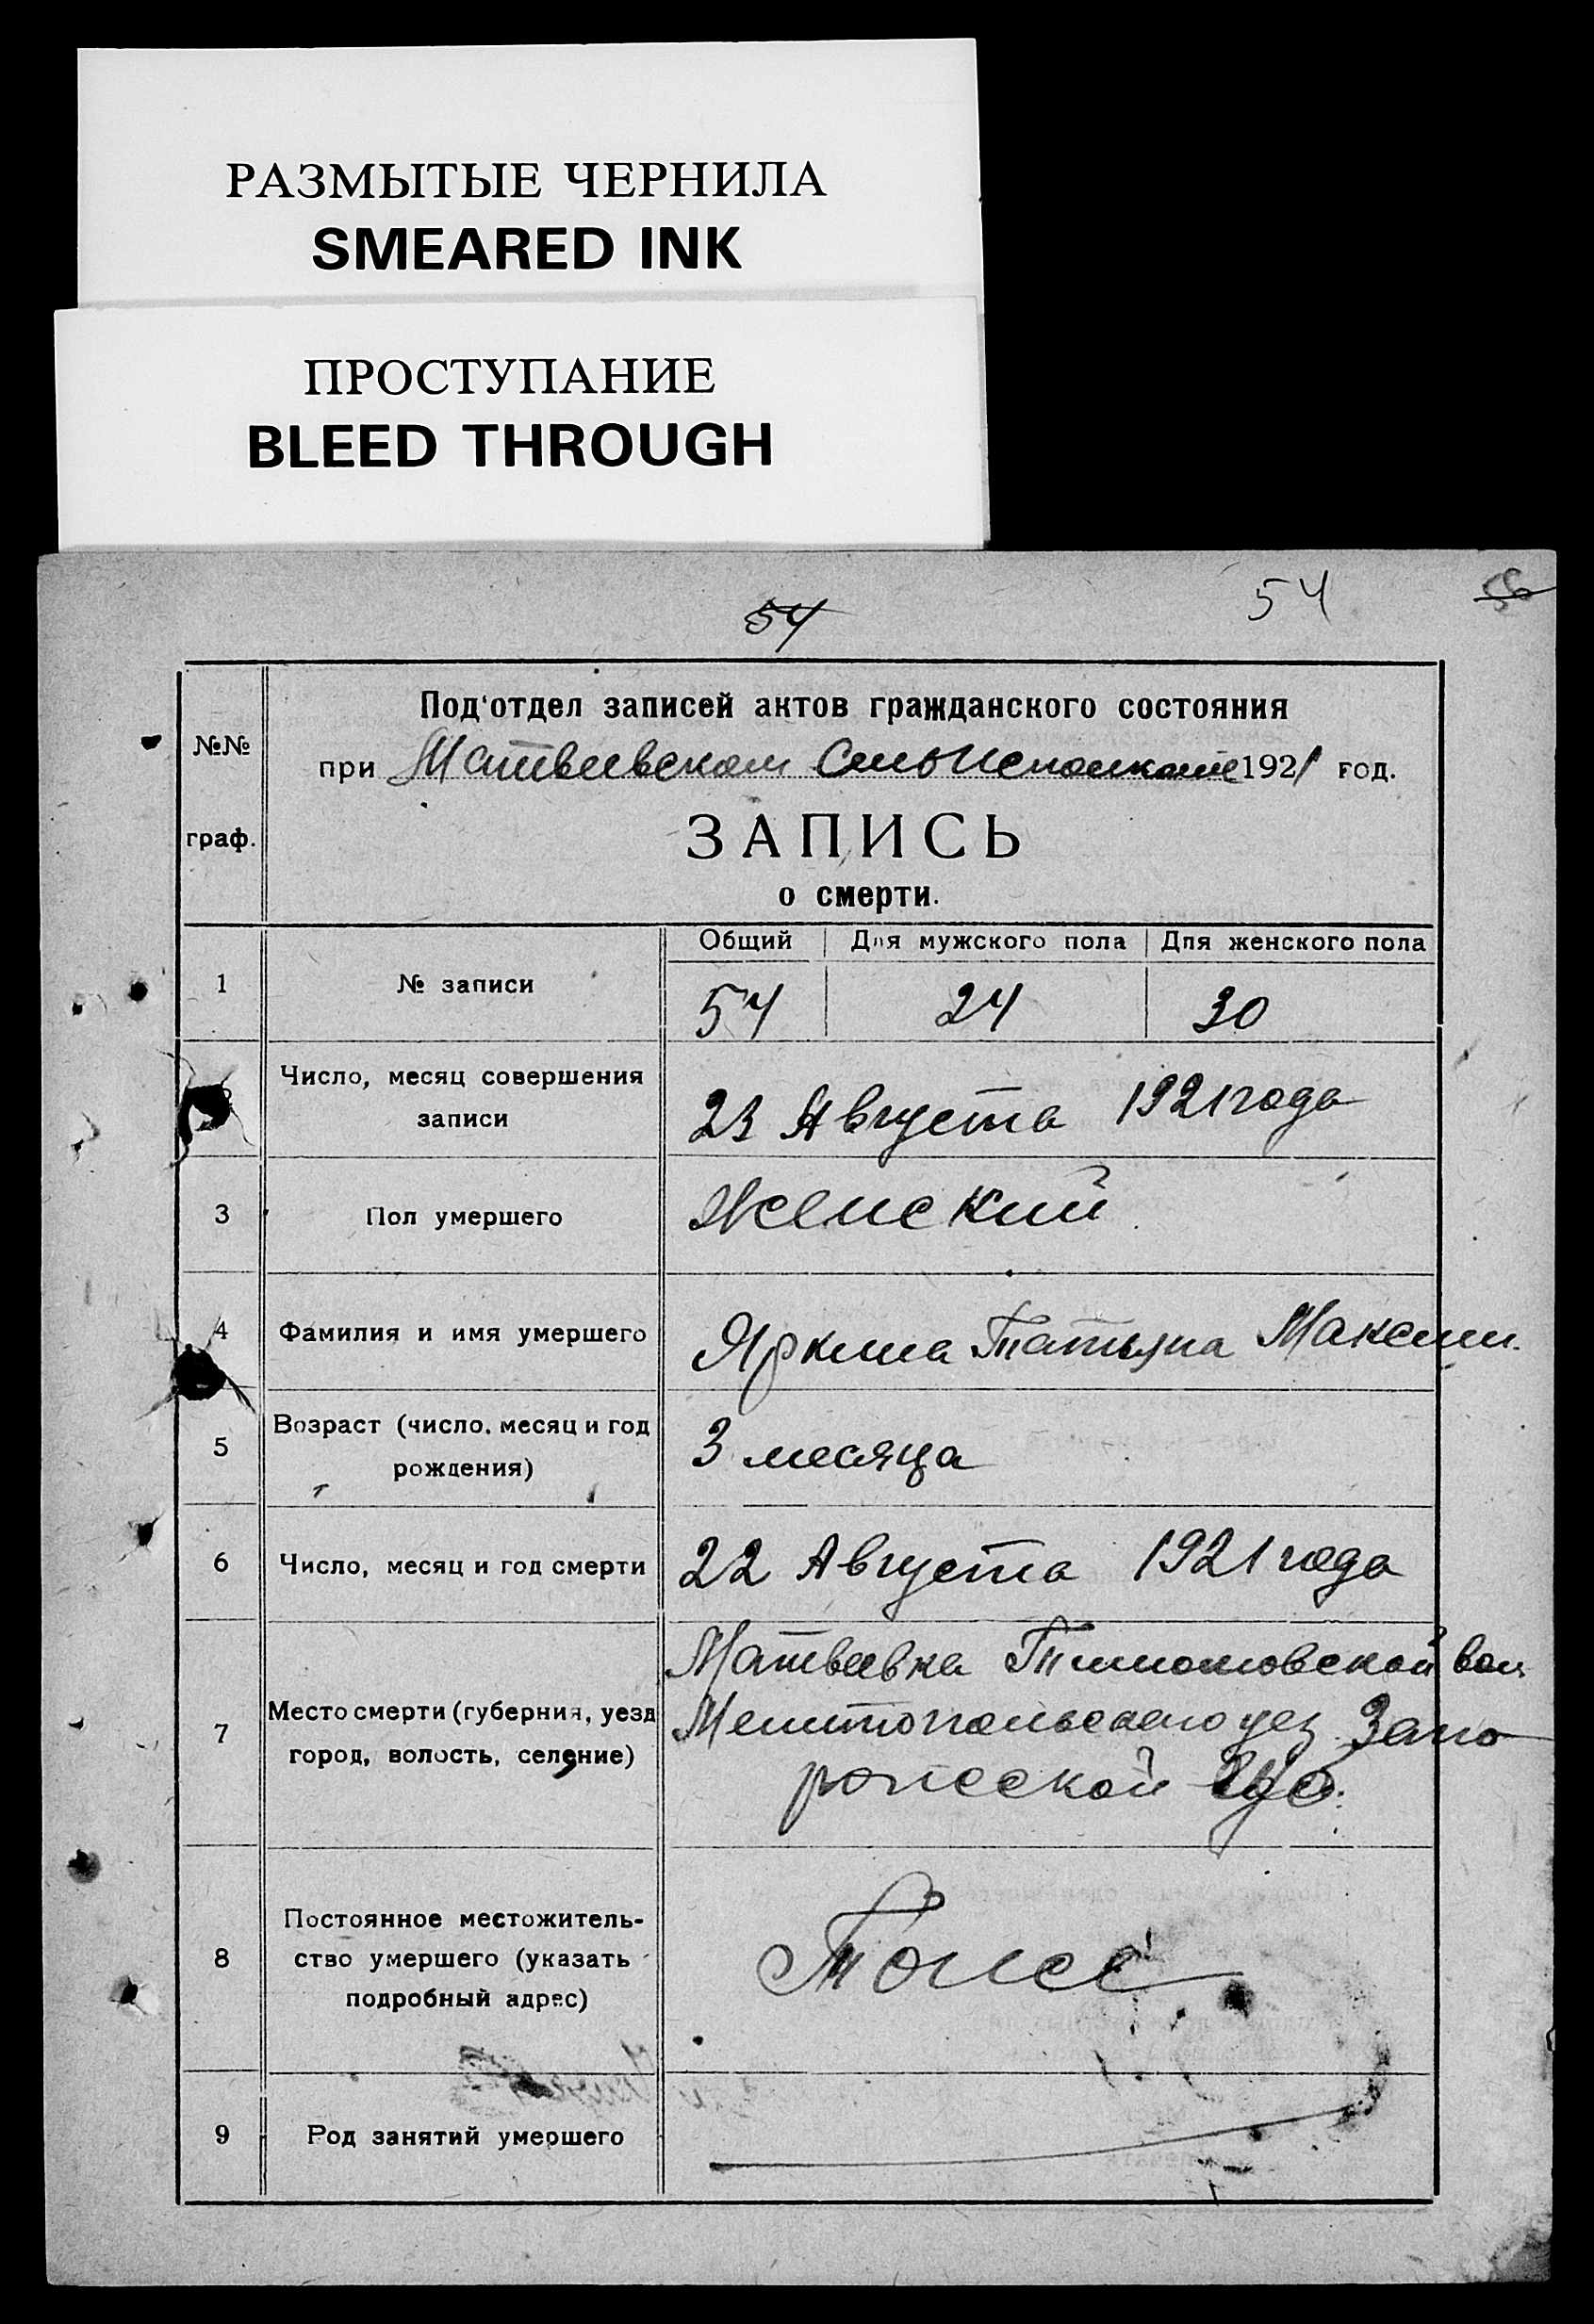 РАЗМЫТЫЕ ЧЕРНИЛА
SMEARED INK
ПРОСТУПАНИЕ
BLEED THROUGH
54 54
Под'отдел записей актов гражданского состояния
№№ при Матвеевском Сельисполкоме 1921 год.
граф. ЗАПИСЬ
о смерти.
Общий Для мужского пола Для женского пола
1 № записи 54 24 30
2 Число, месяц совершения
записи 23 Августа 1921 года
3 Пол умершего Женский
4 Фамилия и имя умершего Яркина Татьяна Максим.
5 Возраст (число, месяц и год
рождения) 3 месяца
6 Число, месяц и год смерти 22 Августа 1921 года
Матвеевка Тимошовской вол.
7 Место смерти (губерния, уезд Мелитопольского уез Запо
город, волость, селение) рожской Губ.
Постоянное местожитель-
8 ство умершего (указать Тоже
подробный адрес)
9 Род занятий умершего